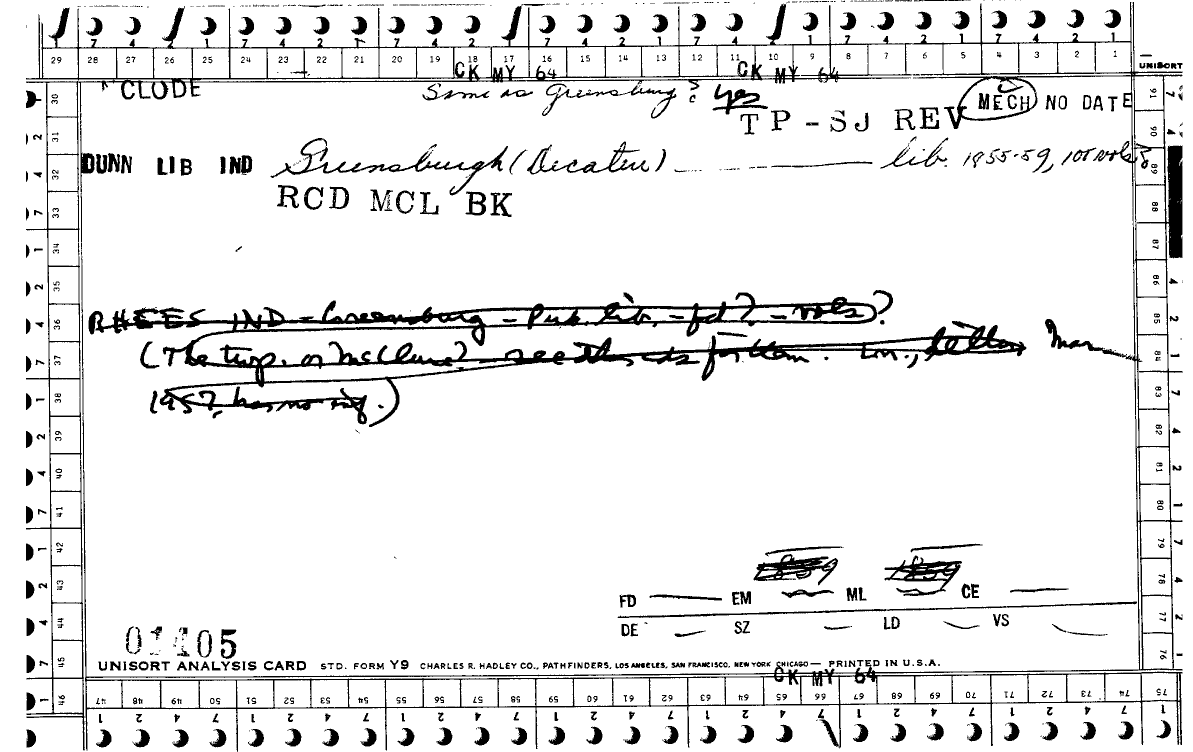 7 4 2 1 7 4 2 1 7 4 2 1 7 4 2 1 7 4 2 1 7 4 2 1 7 4 2 1
29 28 27 26 25 24 23 22 21 20 19 18 17 16 15 14 13 12 11 10 9 8 7 6 5 4 3 2 1
UNISORT
CK MY 64 CK MY 64
CLODE Same as Greensburg? Yes MECH NO DATE
TP-SJ REV
DUNN LIB IND Greensburgh (Decatur) lib. 1855-59, 101 vols
RCD MCL BK
RHEES IND - Greensburg - Pub. lib. - fd? - vols?
(The twp. or McClure? see this cds for them. Ln., letter Mar
1957, has no sig.)
1859 1859
FD EM ML CE
DE SZ LD VS
01405
UNISORT ANALYSIS CARD STD. FORM Y9 CHARLES R. HADLEY CO., PATHFINDERS, LOS ANGELES, SAN FRANCISCO, NEW YORK CHICAGO — PRINTED IN U.S.A.
CK MY 64
47 48 49 50 51 52 53 54 55 56 57 58 59 60 61 62 63 64 65 66 67 68 69 70 71 72 73 74 75